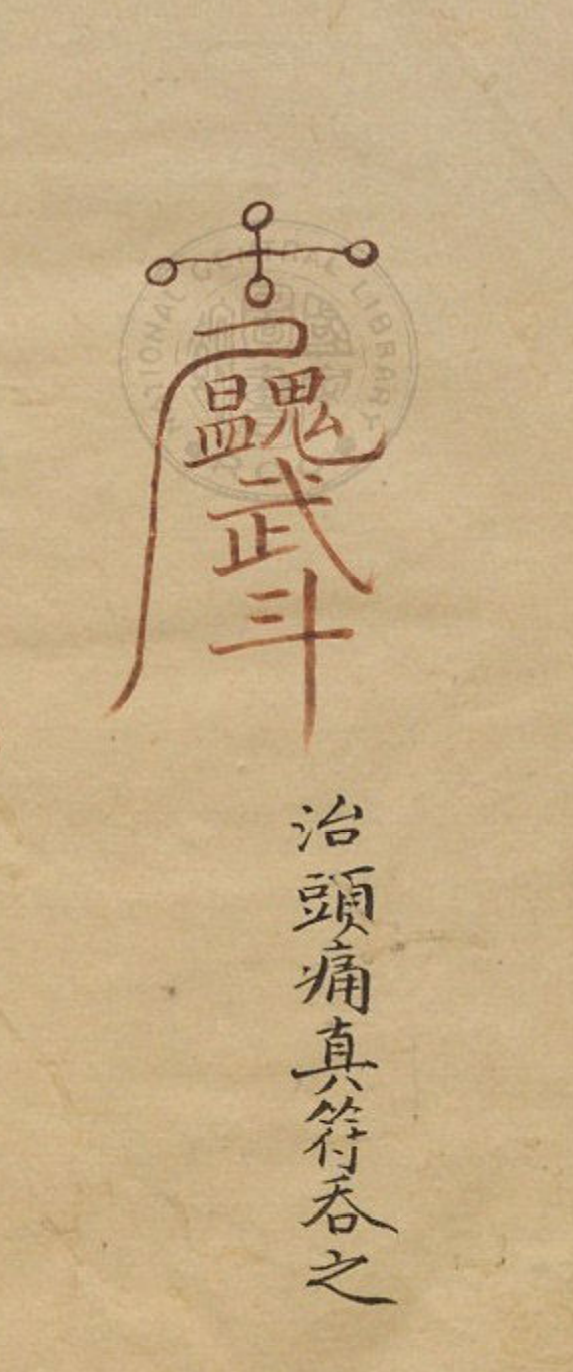 昷鬼武斗
治頭痛真符吞之
LIBRARY